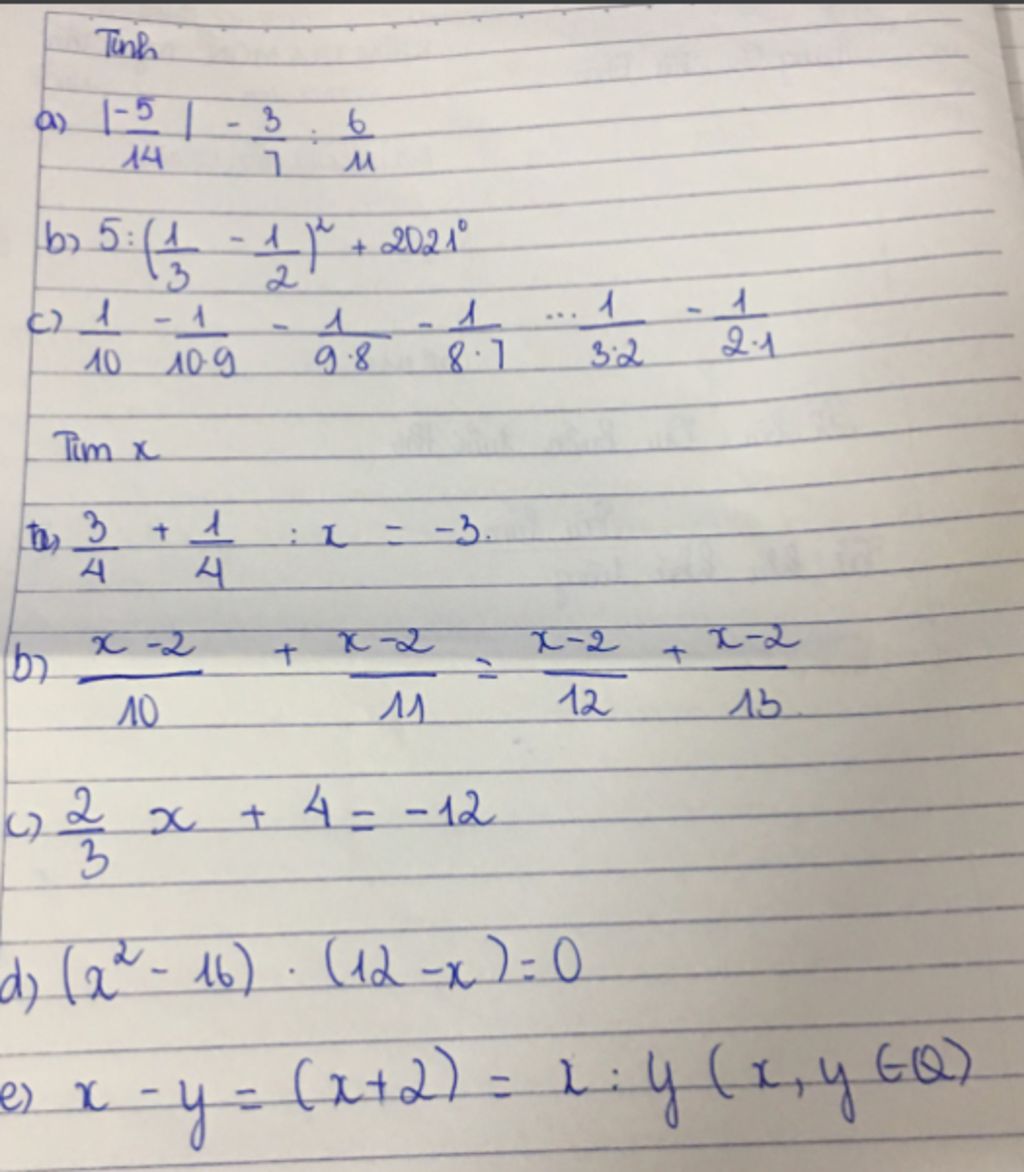 Tính
a) |-5/14| - 3/7 : 6/11
b) 5 : (1/3 - 1/2)² + 2021⁰
c) 1/10 - 1/10·9 - 1/9·8 - 1/8·7 ... 1/3·2 - 1/2·1
Tìm x
a) 3/4 + 1/4 : x = -3.
b) x-2/10 + x-2/11 = x-2/12 + x-2/13
c) 2/3 x + 4 = -12
d) (x² - 16) · (12 - x) = 0
e) x - y = (x+2) = x : y (x, y ∈ Q)